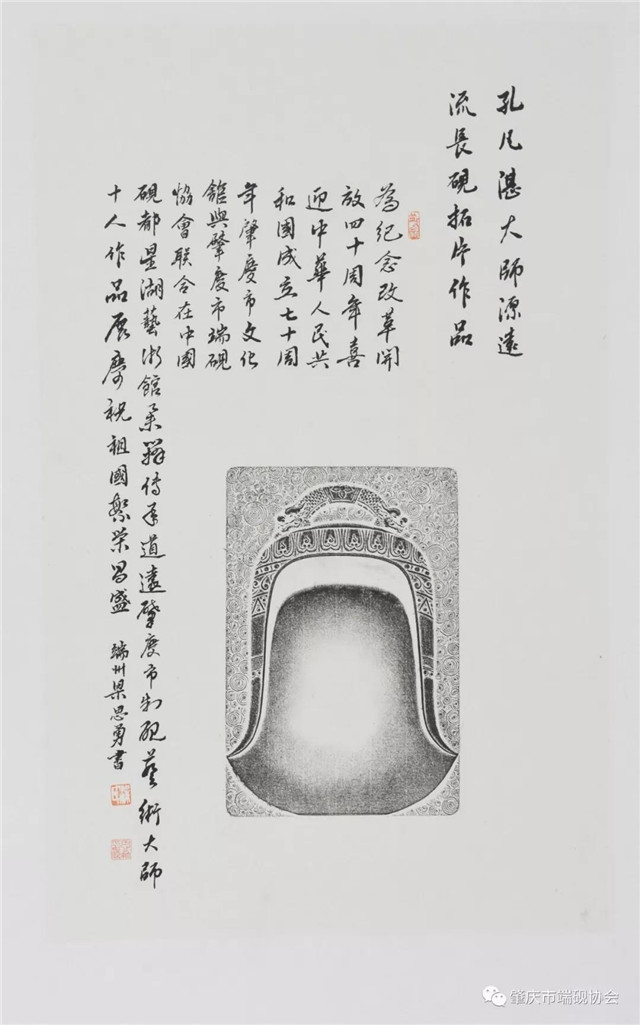 孔凡湛大师源遠
流長硯拓片作品
為纪念改革開
放四十周年喜
迎中華人民共
和國成立七十周
年肇慶市文化
館與肇慶市端硯
協會联合在中國
硯都星湖藝術館举辦传承道遠肇慶市制硯藝術大師
十人作品展慶祝祖國繁荣昌盛
端州梁思勇書
肇庆市端砚协会